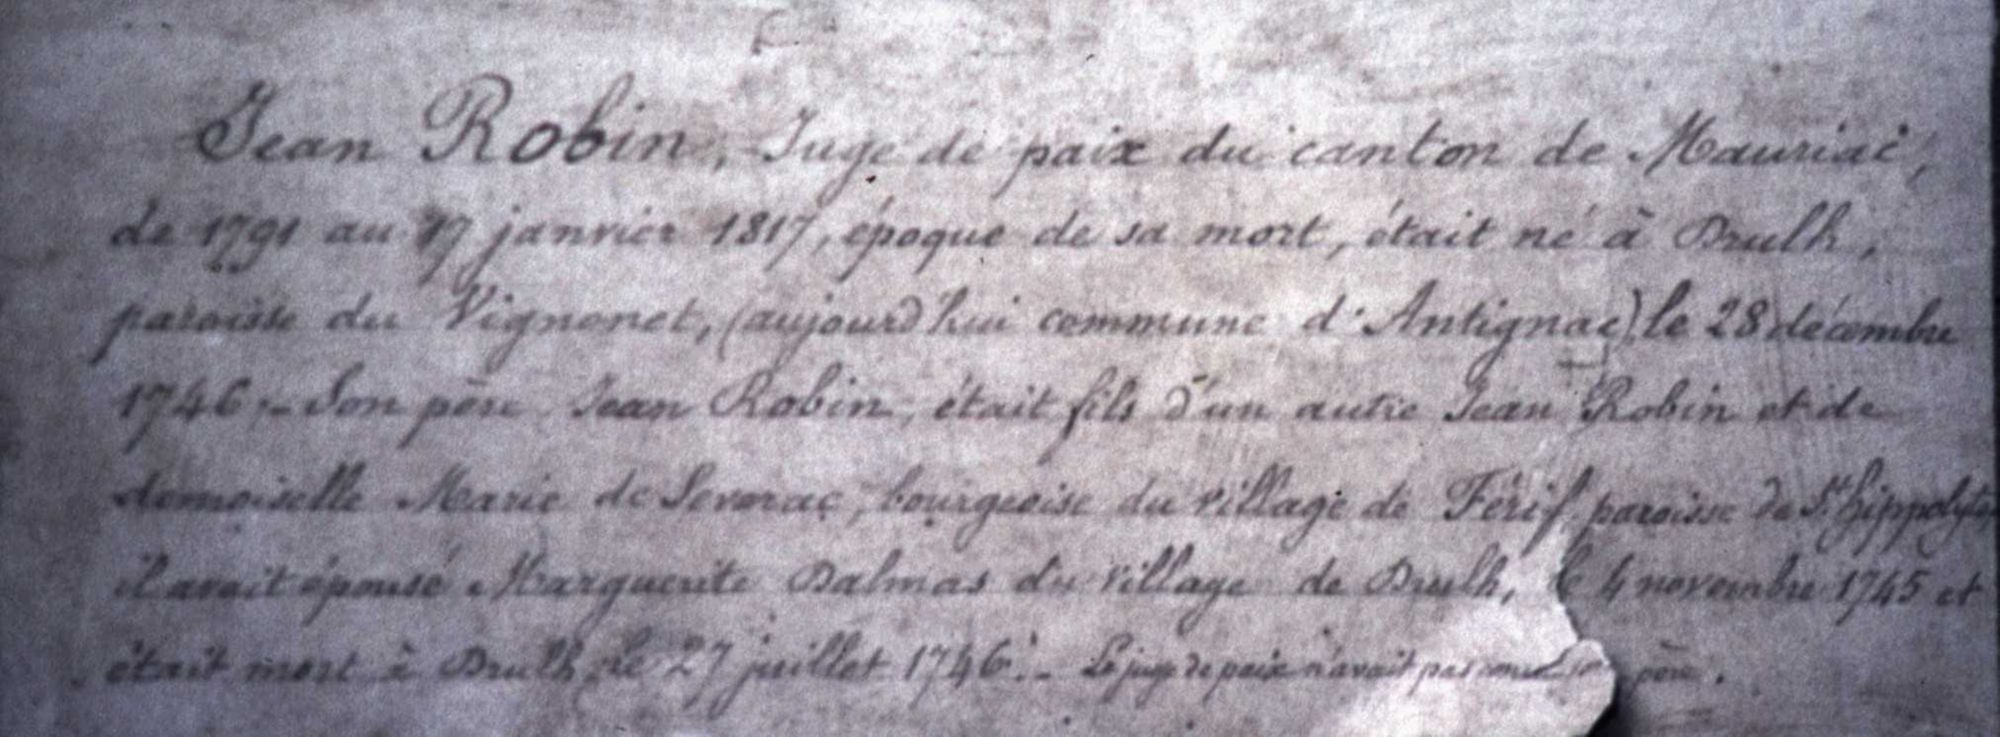 Jean Robin, Juge de paix du canton de Mauriac,
de 1791 au 17 janvier 1817, époque de sa mort, était né à Drulh,
paroisse du Vignonet, (aujourd'hui commune d'Antignac) le 28 décembre
1746. – Son père Jean Robin, était fils d'un autre Jean Robin et de
demoiselle Marie de Sevorac, bourgeoise du village de paroisse de St hippolyte
il avait épousé Marguerite Dalmas du village de Drulh, le 4 novembre 1745 et
était mort à Drulh le 27 juillet 1746. – Le juge de paix n'avait pas connu son père.